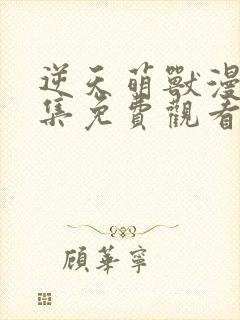 逆天萌獸漫
集免費觀看
顧華寧